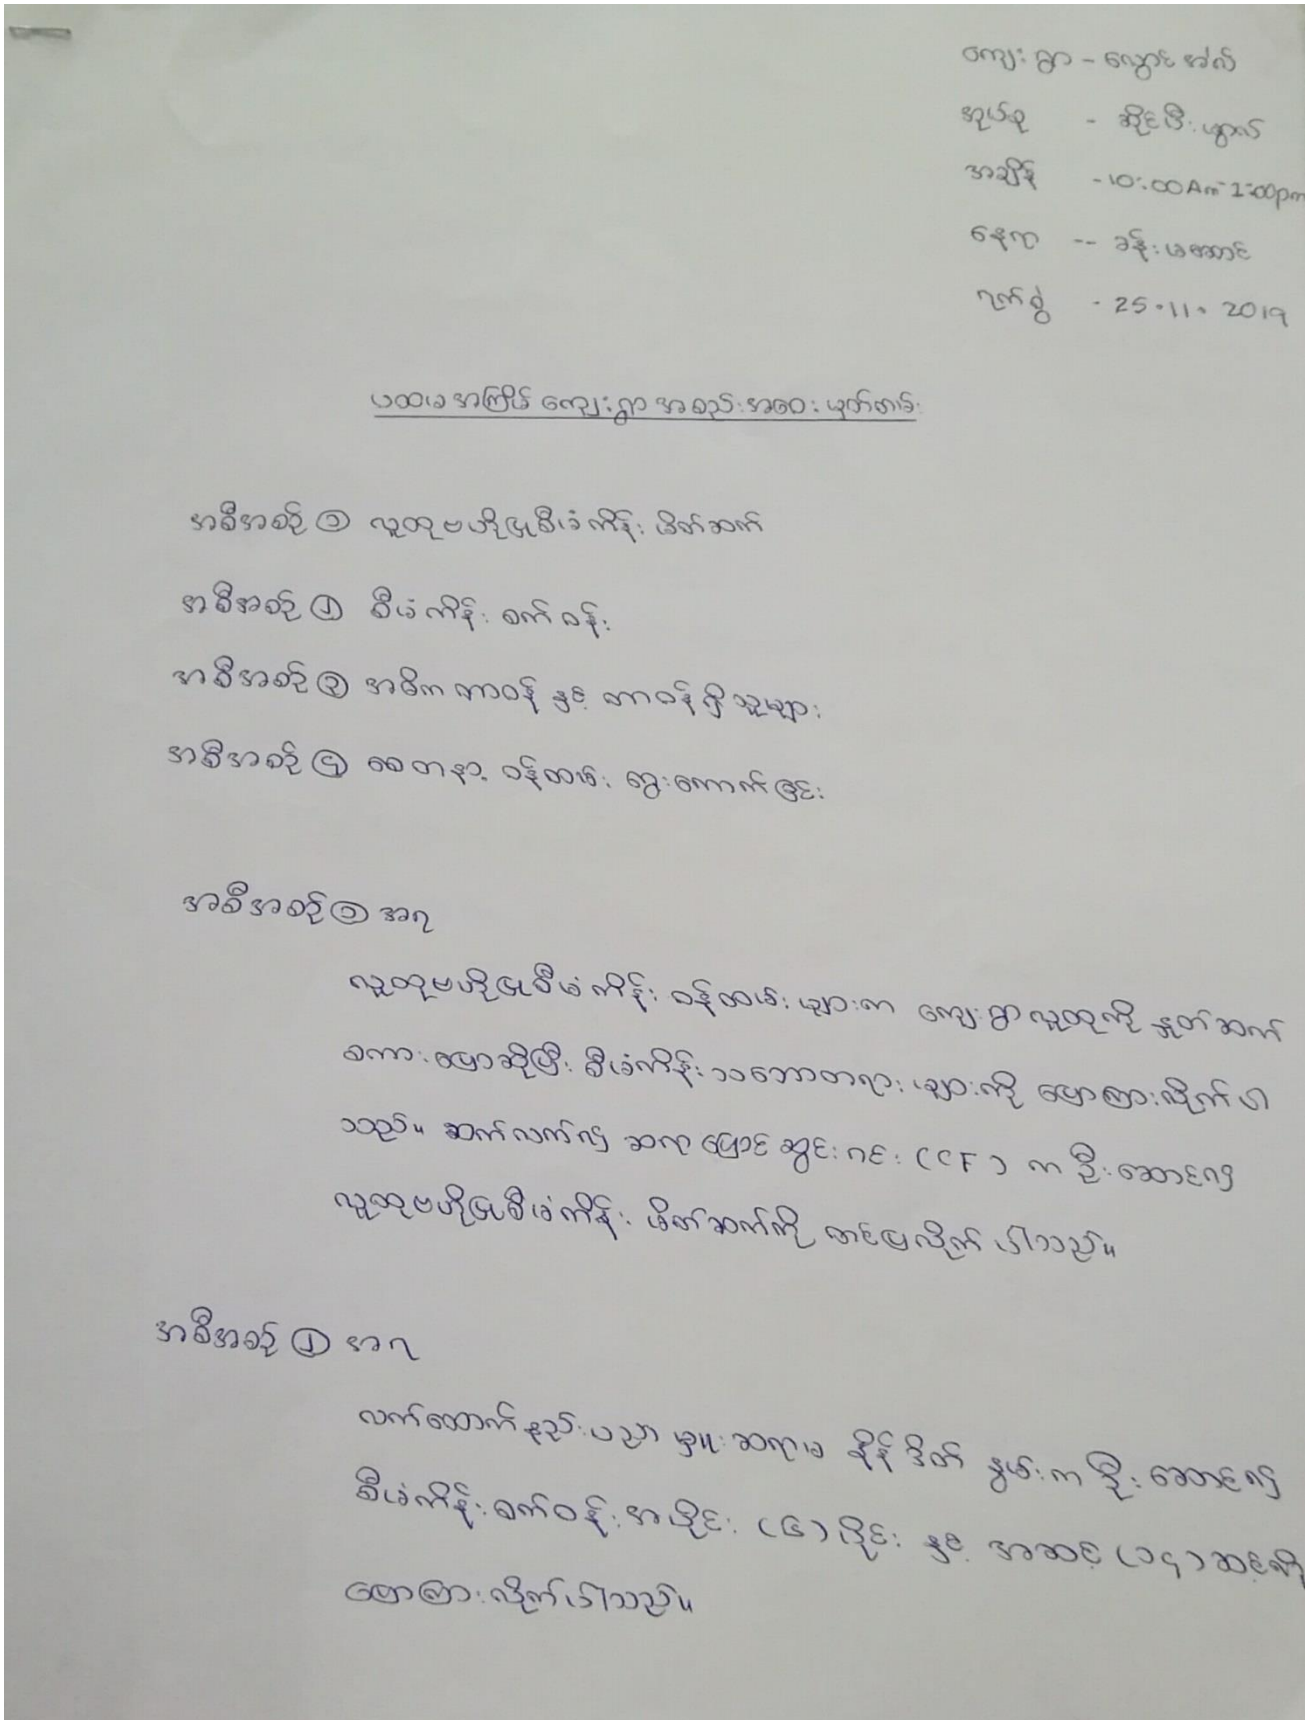 ကျေးရွာ - လွောင်အဲလ်
အုပ်စု - ဆိုင်ဇီးမွာလ်
အချိန် - 10:00Am-1:00pm
နေရာ -- ခန်းမဆောင်
ရက်စွဲ - 25.11.2019
ပထမအကြိမ် ကျေးရွာ အစည်းအဝေး မှတ်တမ်း
အစီအစဉ် ① လူထုဗဟိုပြုစီမံကိန်း မိတ်ဆက်
အစီအစဉ် ② စီမံကိန်း စက်ဝန်း
အစီအစဉ် ③ အဓိက တာဝန် နှင့် တာဝန်ရှိသူများ
အစီအစဉ် ④ စေတနာ့ ဝန်ထမ်း ရွေးကောက်ခြင်း
အစီအစဉ် ① အရ
လူထုဗဟိုပြုစီမံကိန်း ဝန်ထမ်းများက ကျေးရွာလူထုကို နှုတ်ဆက်
စကားပြောဆိုပြီး စီမံကိန်း သဘောတရားများကို ပြောကြားလိုက်ပါ
သည်။ ဆက်လက်၍ ဆရာ ဆွင်း (CF) က ဦးဆောင်၍
လူထုဗဟိုပြုစီမံကိန်း မိတ်ဆက်ကို တင်ပြလိုက်ပါသည်။
အစီအစဉ် ② အရ
လက်ထောက်နည်းပညာမှူး ဆရာမ နွမ်းက ဦးဆောင်၍
စီမံကိန်း စက်ဝန်း အပိုင်း (၆) ပိုင်း နှင့် အဆင့် (၁၄) ဆင့်ကို
ပြောကြားလိုက်ပါသည်။